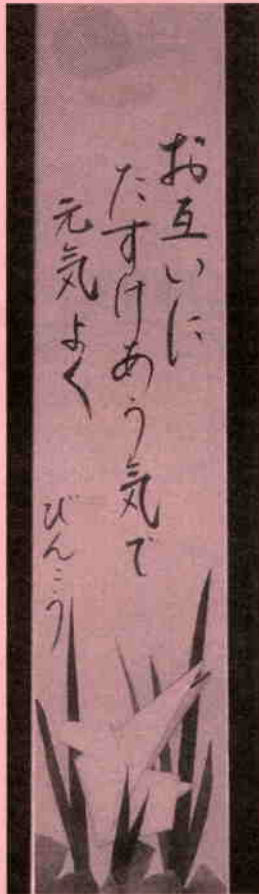 お互いに
たすけあう気で
元気よく
びんこう